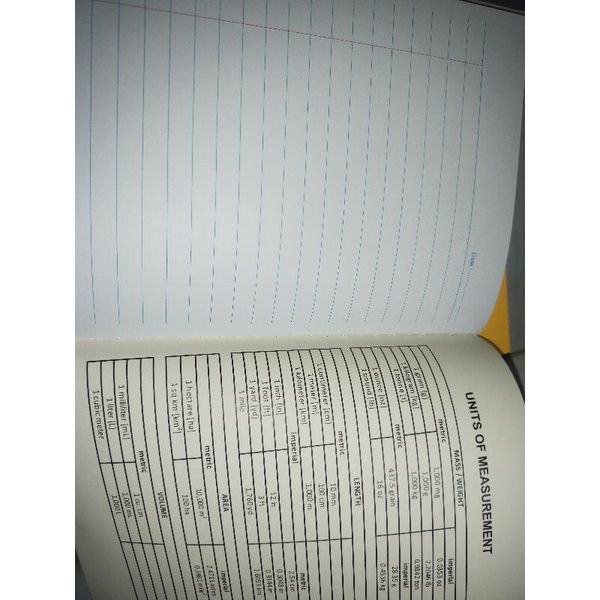 Date
UNITS OF MEASUREMENT
MASS / WEIGHT
metric imperial
1 gram [g] 1,000 mg 0.0353 oz
1 kilogram [kg] 1,000 g 2.2046 lb
1 tonne [t] 1,000 kg 0.9842 ton
metric imperial
1 ounce [oz] 437.5 grain 28.35 g
1 pound [lb] 16 oz 0.4536 kg
LENGTH
metric
1 centimeter [cm] 10 mm
1 meter [m] 100 cm
1 kilometer [km] 1,000 m
imperial metric
1 inch [in] 2.54 cm
1 foot [ft] 12 in
1 yard [yd] 3 ft
1 mile 1,760 yd 1.609 km
AREA
metric imperial
1 hectare [ha] 10,000 m² 2.4711 acres
1 sq km [km²] 100 ha
VOLUME
metric
1 milliliter [mL] 1 cu cm
1 liter [L] 1,000 mL
1 cubic meter 1,000 L